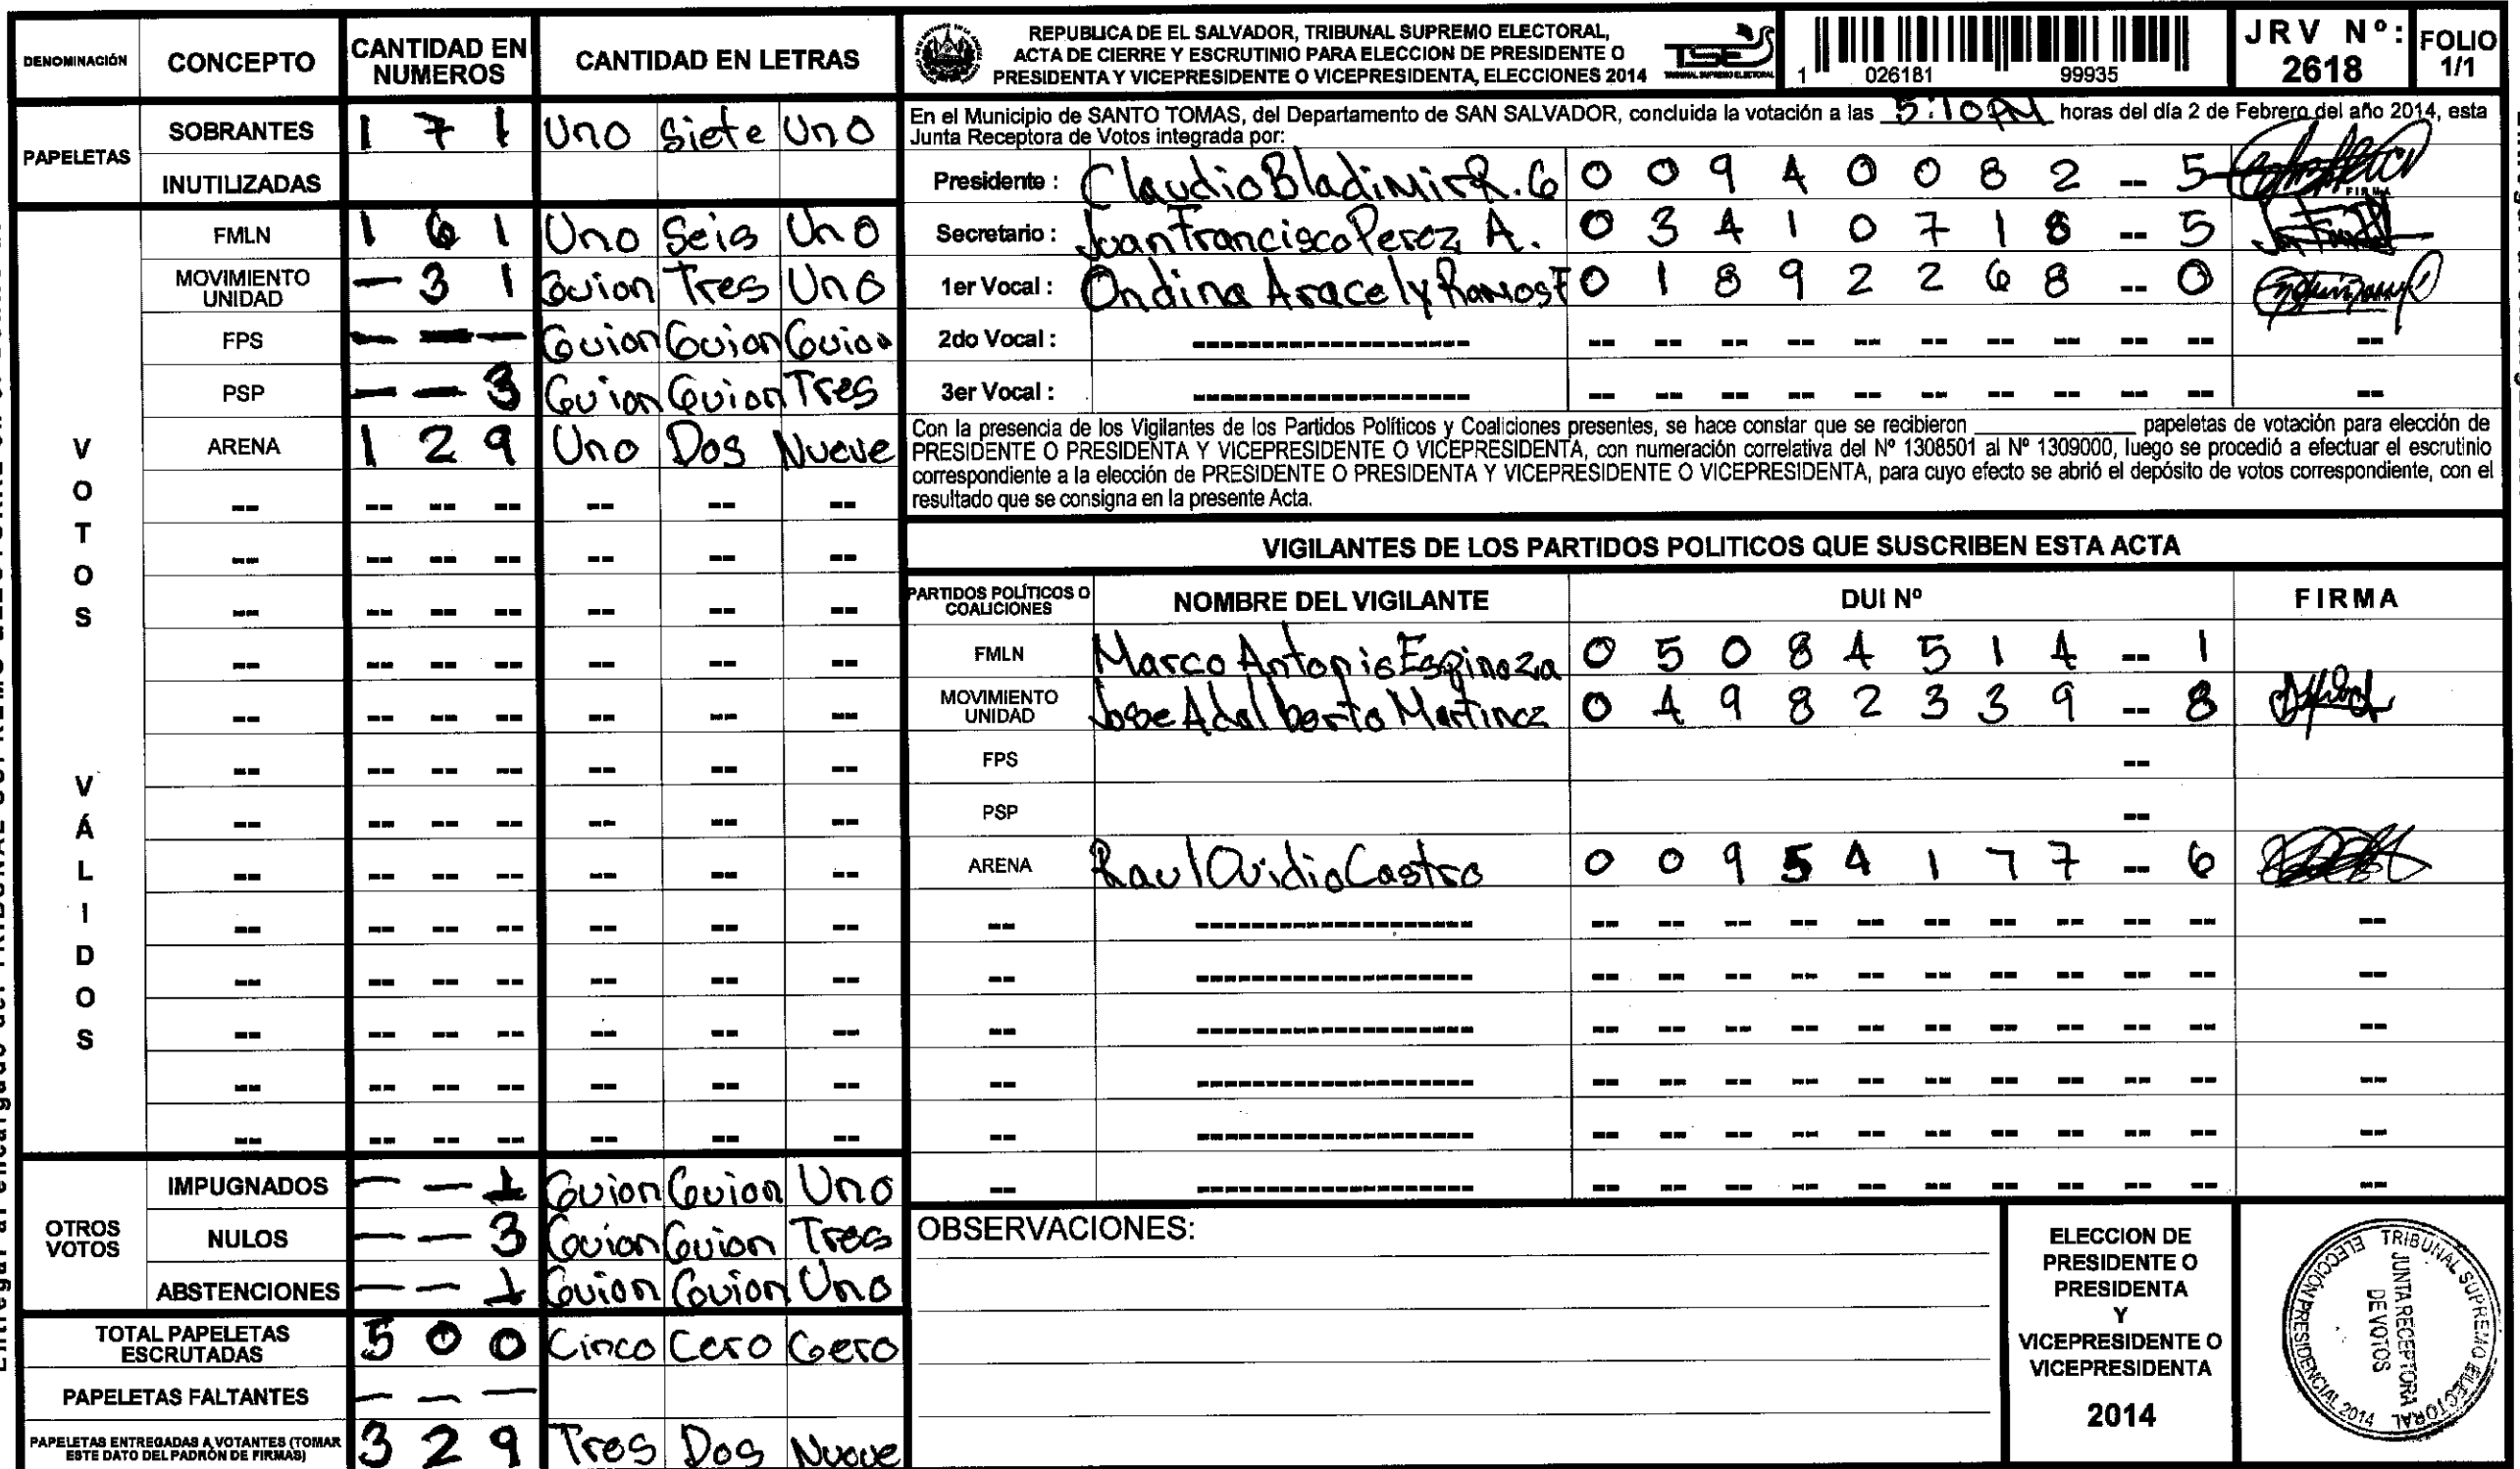 DENOMINACIÓN CONCEPTO CANTIDAD EN NUMEROS CANTIDAD EN LETRAS
PAPELETAS
SOBRANTES 1 7 1 Uno Siete Uno
INUTILIZADAS
VOTOS VÁLIDOS
FMLN 1 6 1 Uno Seis Uno
MOVIMIENTO UNIDAD — 3 1 Guion Tres Uno
FPS — — — Guion Guion Guion
PSP — — 3 Guion Guion Tres
ARENA 1 2 9 Uno Dos Nueve
-- -- -- -- -- -- --
-- -- -- -- -- -- --
-- -- -- -- -- -- --
-- -- -- -- -- -- --
-- -- -- -- -- -- --
-- -- -- -- -- -- --
-- -- -- -- -- -- --
-- -- -- -- -- -- --
-- -- -- -- -- -- --
-- -- -- -- -- -- --
-- -- -- -- -- -- --
-- -- -- -- -- -- --
-- -- -- -- -- -- --
OTROS VOTOS
IMPUGNADOS — — 1 Guion Guion Uno
NULOS — — 3 Guion Guion Tres
ABSTENCIONES — — 1 Guion Guion Uno
TOTAL PAPELETAS ESCRUTADAS 5 0 0 Cinco Cero Cero
PAPELETAS FALTANTES — — —
PAPELETAS ENTREGADAS A VOTANTES (TOMAR ESTE DATO DEL PADRÓN DE FIRMAS) 3 2 9 Tres Dos Nueve
REPUBLICA DE EL SALVADOR, TRIBUNAL SUPREMO ELECTORAL,
ACTA DE CIERRE Y ESCRUTINIO PARA ELECCION DE PRESIDENTE O
PRESIDENTA Y VICEPRESIDENTE O VICEPRESIDENTA, ELECCIONES 2014
TSE
TRIBUNAL SUPREMO ELECTORAL
1 026181 99935
JRV Nº: 2618
FOLIO 1/1
En el Municipio de SANTO TOMAS, del Departamento de SAN SALVADOR, concluida la votación a las 5:10 PM horas del día 2 de Febrero del año 2014, esta
Junta Receptora de Votos integrada por:
Presidente : Claudio Bladimir R. G 0 0 9 4 0 0 8 2 -- 5
FIRMA
Secretario : Juan Francisco Perez A. 0 3 4 1 0 7 1 8 -- 5
1er Vocal : Ondina Aracely Ramos F 0 1 8 9 2 2 6 8 -- 0
2do Vocal : ------------------ -- -- -- -- -- -- -- -- -- -- --
3er Vocal : ------------------ -- -- -- -- -- -- -- -- -- -- --
Con la presencia de los Vigilantes de los Partidos Políticos y Coaliciones presentes, se hace constar que se recibieron ____________ papeletas de votación para elección de
PRESIDENTE O PRESIDENTA Y VICEPRESIDENTE O VICEPRESIDENTA, con numeración correlativa del Nº 1308501 al Nº 1309000, luego se procedió a efectuar el escrutinio
correspondiente a la elección de PRESIDENTE O PRESIDENTA Y VICEPRESIDENTE O VICEPRESIDENTA, para cuyo efecto se abrió el depósito de votos correspondiente, con el
resultado que se consigna en la presente Acta.
VIGILANTES DE LOS PARTIDOS POLITICOS QUE SUSCRIBEN ESTA ACTA
PARTIDOS POLÍTICOS O COALICIONES NOMBRE DEL VIGILANTE DUI Nº FIRMA
FMLN Marco Antonio Espinoza 0 5 0 8 4 5 1 4 -- 1
MOVIMIENTO UNIDAD Jose Adalberto Martinez 0 4 9 8 2 3 3 9 -- 8
FPS --
PSP --
ARENA Raul Ovidio Castro 0 0 9 5 4 1 7 7 -- 6
-- ------------------ -- -- -- -- -- -- -- -- -- -- --
-- ------------------ -- -- -- -- -- -- -- -- -- -- --
-- ------------------ -- -- -- -- -- -- -- -- -- -- --
-- ------------------ -- -- -- -- -- -- -- -- -- -- --
-- ------------------ -- -- -- -- -- -- -- -- -- -- --
-- ------------------ -- -- -- -- -- -- -- -- -- -- --
OBSERVACIONES:
ELECCION DE
PRESIDENTE O
PRESIDENTA
Y
VICEPRESIDENTE O
VICEPRESIDENTA
2014
TRIBUNAL SUPREMO ELECTORAL
JUNTA RECEPTORA
DE VOTOS
ELECCIÓN PRESIDENCIAL 2014